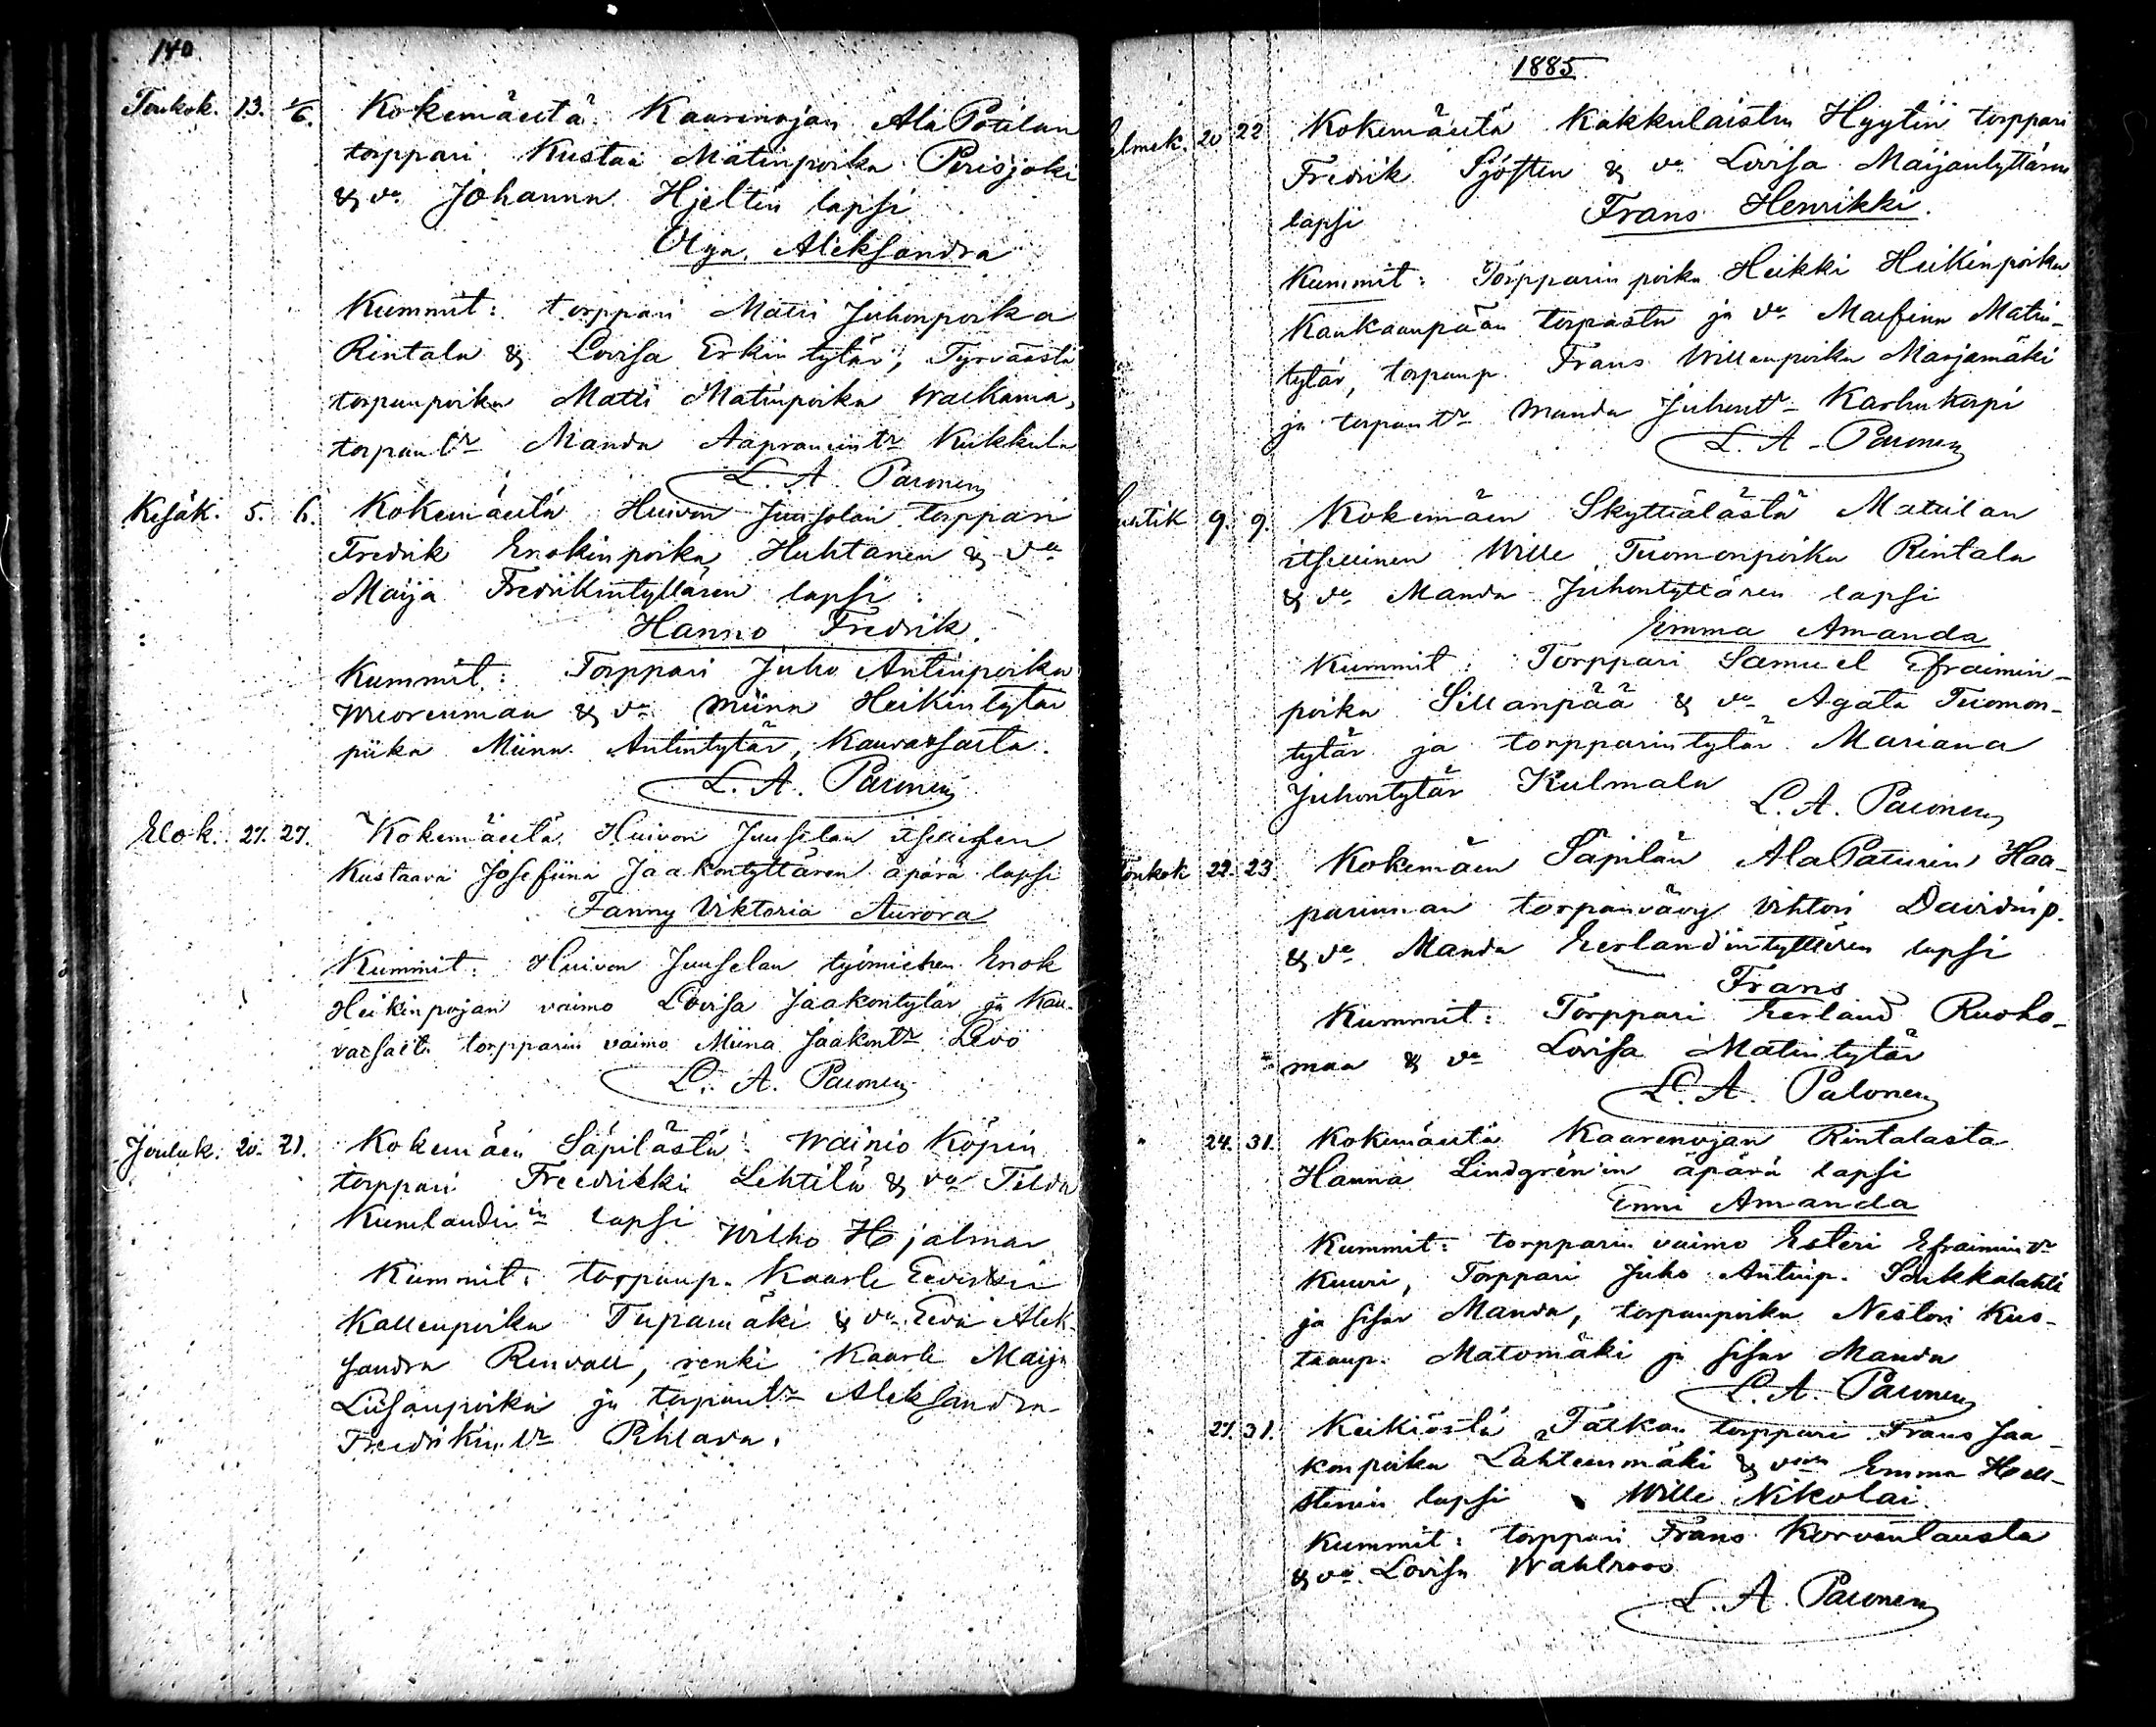 140
Toukok. 13. 1/6. Kokemäeltä Kaarenojan Ala Potilan
torppari Kustaa Matinpoika Perisjoki
& vo Johanna Hjeltin lapsi
Olga Aleksandra
Kummit: torppari Matti Juhonpoika
Rintala & Lovisa Erkin tytär, Tyrväästä
torpanpoika Matti Matinpoika
torpantr Manda Aapramintr Kukkula
L. A. Palonen
Kesäk. 5. 6. Kokemäeltä Huivon Juuselan torppari
Fredrik Enokinpoika Huhtanen & vo
Maija Fredrikintyttären lapsi:
Hanno Fredrik.
Kummit: Torppari Juho Antinpoika
Wuorenmaa & vo Miina Heikintytär
piika Miina Antintytär, Kauvatsalta.
L. A. Palonen
Elok. 27. 27. Kokemäeltä Huivon Juuselan itsellisen
Kustaava Josefiina Jaakontyttären äpärä lapsi
Fanny Viktoria Aurora
Kummit: Huivon Juuselan työmiehen Enok
Heikinpojan vaimo Lovisa Jaakontytär ja Kau-
vatsalt. torpparin vaimo Miina Jaakontr Levo
L. A. Palonen
Jouluk. 20. 21. Kokemäen Säpilästä Wainio Köpin
torppari Freedrikki Lehtilä & vo Tilda
Kumlandin lapsi Wilho Hjalmar
Kummit: torpanp. Kaarle
Kallenpoika Tupamäki & vo Eeva Alek-
sandra Renvall, renki Kaarle Maija
Liisanpoika ja torpantr Aleksandra
Freedrikintr Pihlava.
1885
Helmik. 20 22 Kokemäeltä Kakkulaisten Hyytin torppari
Fredrik Sjösten & vo Lovisa Maijantyttären
lapsi Frans Henrikki.
Kummit: Torpparin poika Heikki Heikinpoika
Kankaanpään torpasta ja vo Matin-
tytär, torpanp. Frans Willenpoika Marjamäki
ja torpantr Manda Juhontr Karhukorpi
L. A. Palonen
Huhtik 9. 9. Kokemäen Skyttälästä Mattilan
itsellinen Wille Tuomonpoika Rintala
& vo Manda Juhontyttären lapsi
Emma Amanda
Kummit: Torppari Samuel Efraimin-
poika Sillanpää & vo Agata Tuomon-
tytär ja torpparintytär Mariana
Juhontytär Kulmala
L. A. Palonen
Toukok 22. 23 Kokemäen Säpilän Ala Paturin Haa-
torpanvävy Vihtori Davidinp.
& vo Manda Eerlandintyttären lapsi
Frans
Kummit: Torppari Eerland Ruoho-
maa & vo Lovisa Matintytär
L. A. Palonen
" 24. 31. Kokemäeltä Kaarenojan Rintalasta
Hanna Lindgrén'in äpärä lapsi
Enni Amanda
Kummit: torpparin vaimo Esteri Efraimintr
Kuuri, Torppari Juho Antinp. Soukkalahti
ja sisar Manda, torpanpoika Nestori Kus-
taanp. Matomäki ja sisar Manda
L. A. Palonen
27. 31. Keikiöstä Talkan torppari Frans Jaa-
konpoika Lähteenmäki & vaim Emma Hell-
stenin lapsi Wille Nikolai
Kummit: torppari Frans Korvenlausta
& vo Lovisa Wahlroos
L. A. Palonen